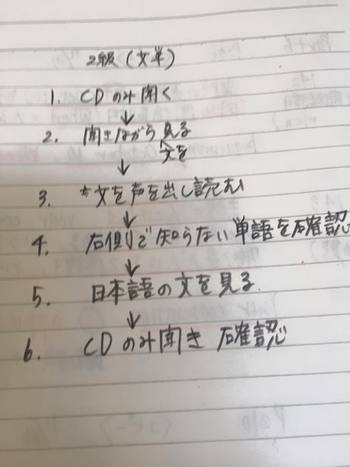 2級(文単)
1. CDのみ聞く
↓
2. 聞きながら見る
文を
↓
3. 文を声を出し読む
↓
4. 右側で知らない単語を確認
↓
5. 日本語の文を見る
↓
6. CDのみ聞き 確認